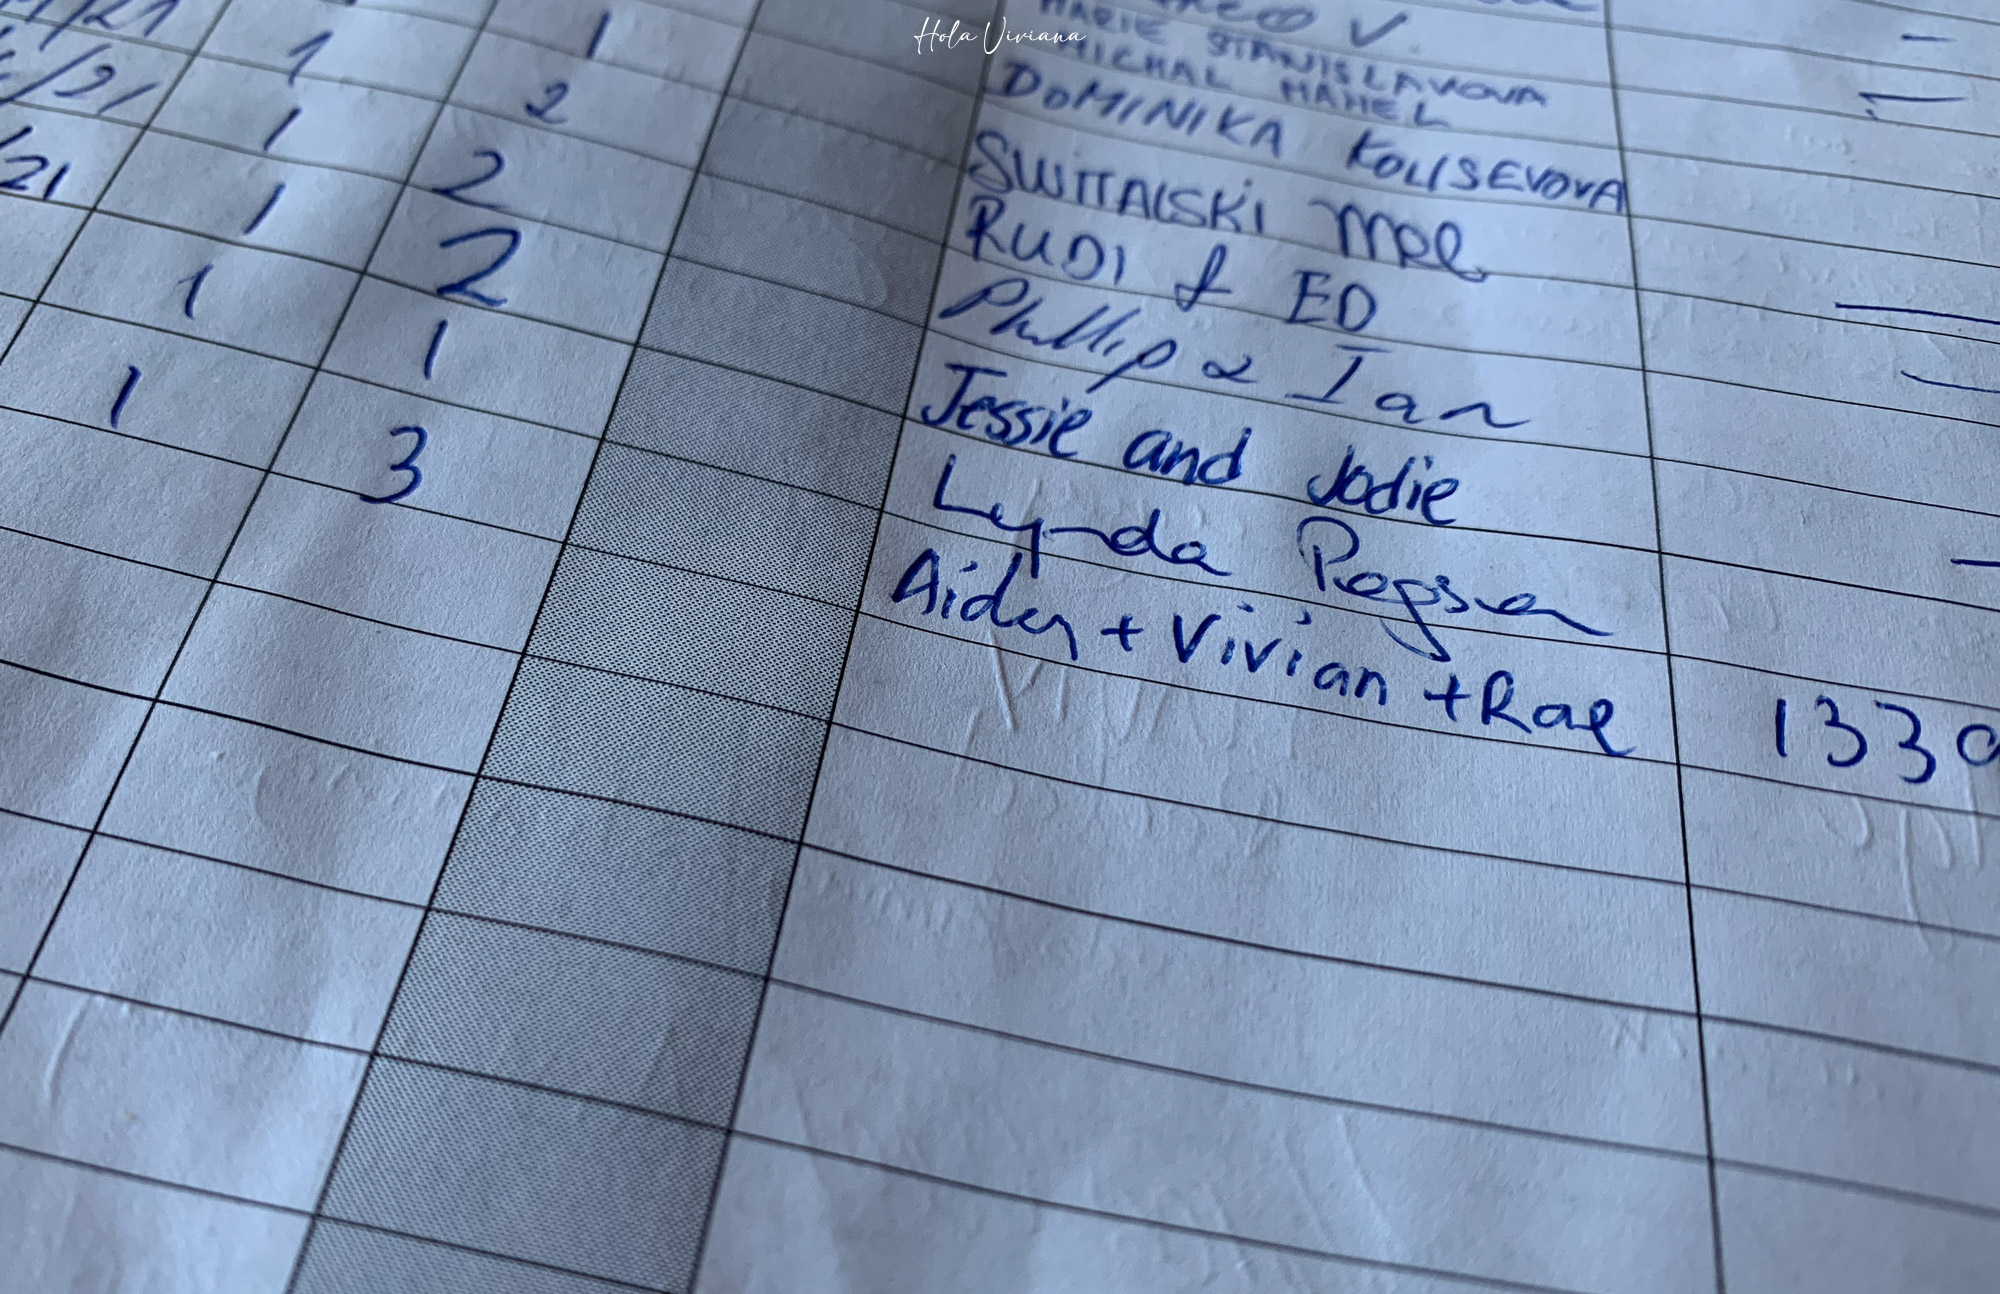 Hola Viviana
V.
MARIE STANISLAVOVA
/21 1 1 MICHAL HAMEL
/21 1 2 DOMINIKA KOLISEVOVA
/21 1 2 SWITALSKI
1 2 RUDI & ED
1 2 Phillip & Ian
Jessie and Jodie
1 1 Lynda
1 3 Aiden + Vivian + Rae 1330